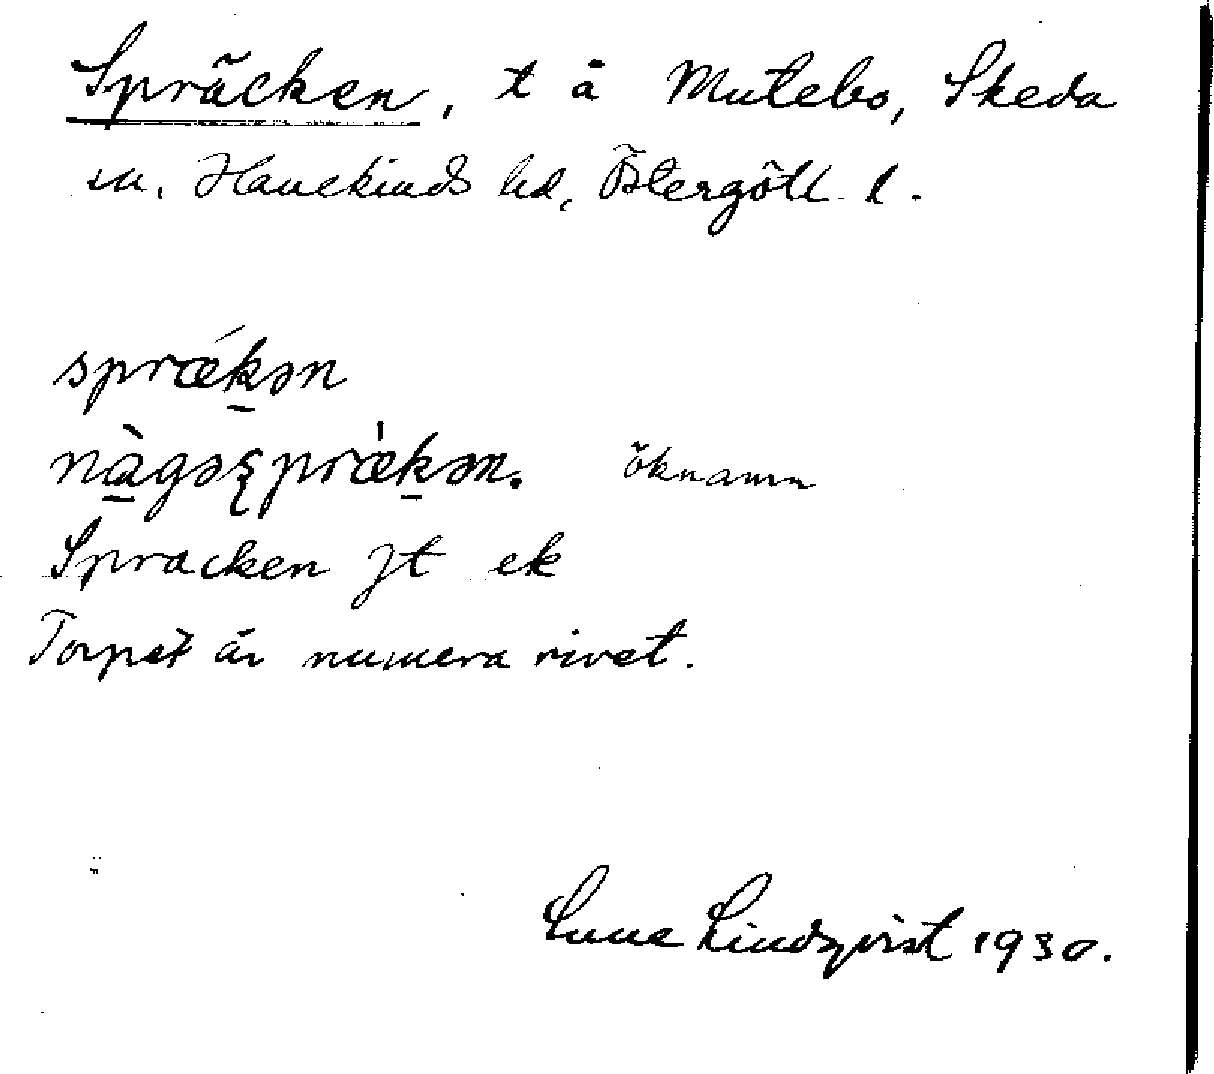 Spräcken, t å Mutebo, Skeda
sn. Hanekinds hd, Östergötl. l.
sprǽkən
nàgəspræ̀kən. öknamn
Spracken Jt ek
Torpet är numera rivet.
Sune Lindqvist 1930.